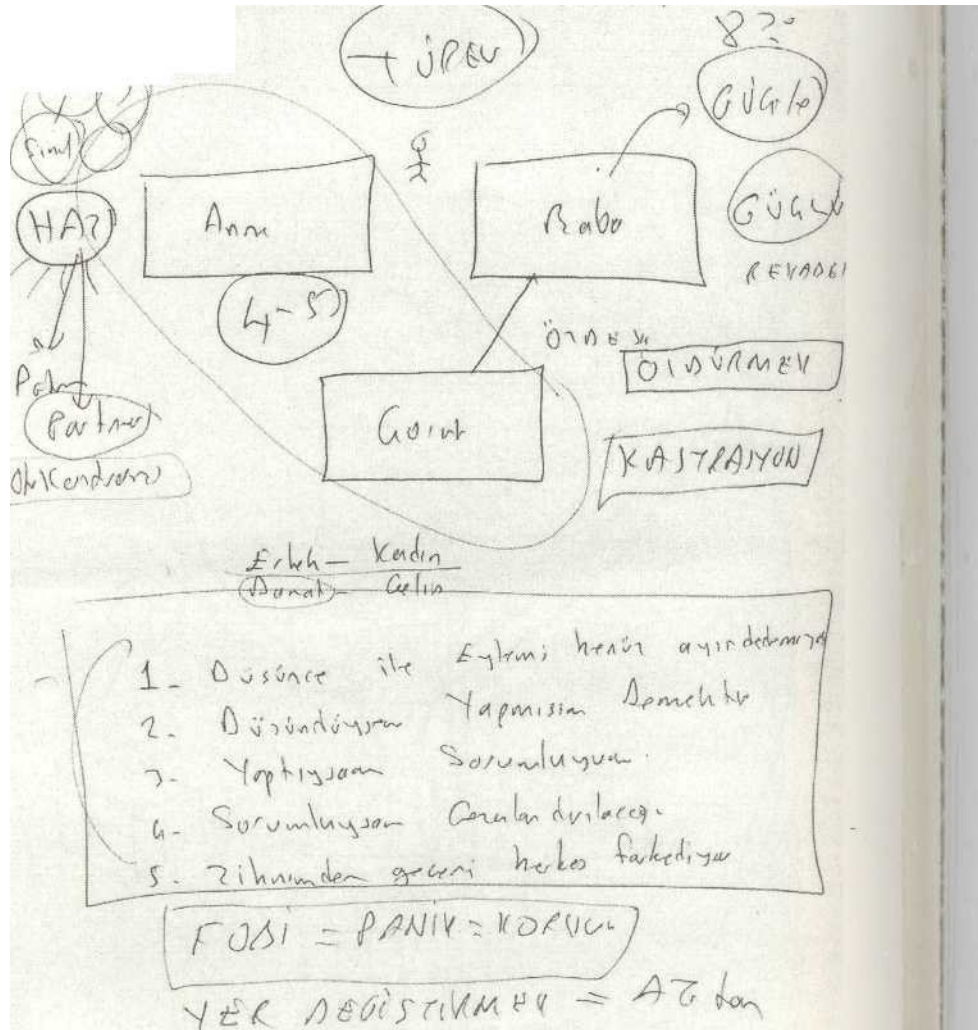 8 ?:
→ ÜREV
GÜÇLÜ
final
HAZ
Anne
Baba
GÜÇLÜ
4-5
ÖZDEŞ
ÖLDÜRMEK
Partner
Çocuk
KASTRASYON
Erkek - Kadın
Damat - Gelin
1- Düşünce ile Eylemi henüz ayırdedemiyor
2- Düşündüysem Yapmışım Demektir
3- Yaptıysam Sorumluyum.
4- Sorumluysam Cezalandırılacağım
5- Zihnimden geçeni herkes farkediyor
FOBİ = PANİK = KORKU
YER DEĞİŞTİRMEK =